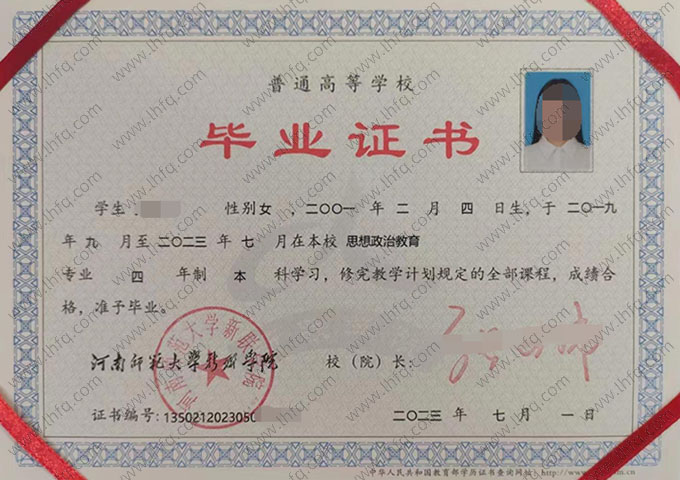 普通高等学校
毕业证书
学生 性别女 ，二〇〇一 年 二 月 四 日生，于 二〇一九
年 九 月至 二〇二三 年 七 月在本校 思想政治教育
专业 四 年制 本 科学习，修完教学计划规定的全部课程，成绩合
格，准予毕业。
河南师范大学新联学院 校（院）长：
河南师范大学新联学院
证书编号：1350212023050 二〇二三 年 七 月 一 日
中华人民共和国教育部学历证书查询网址：http://www.
www.lhfq.com